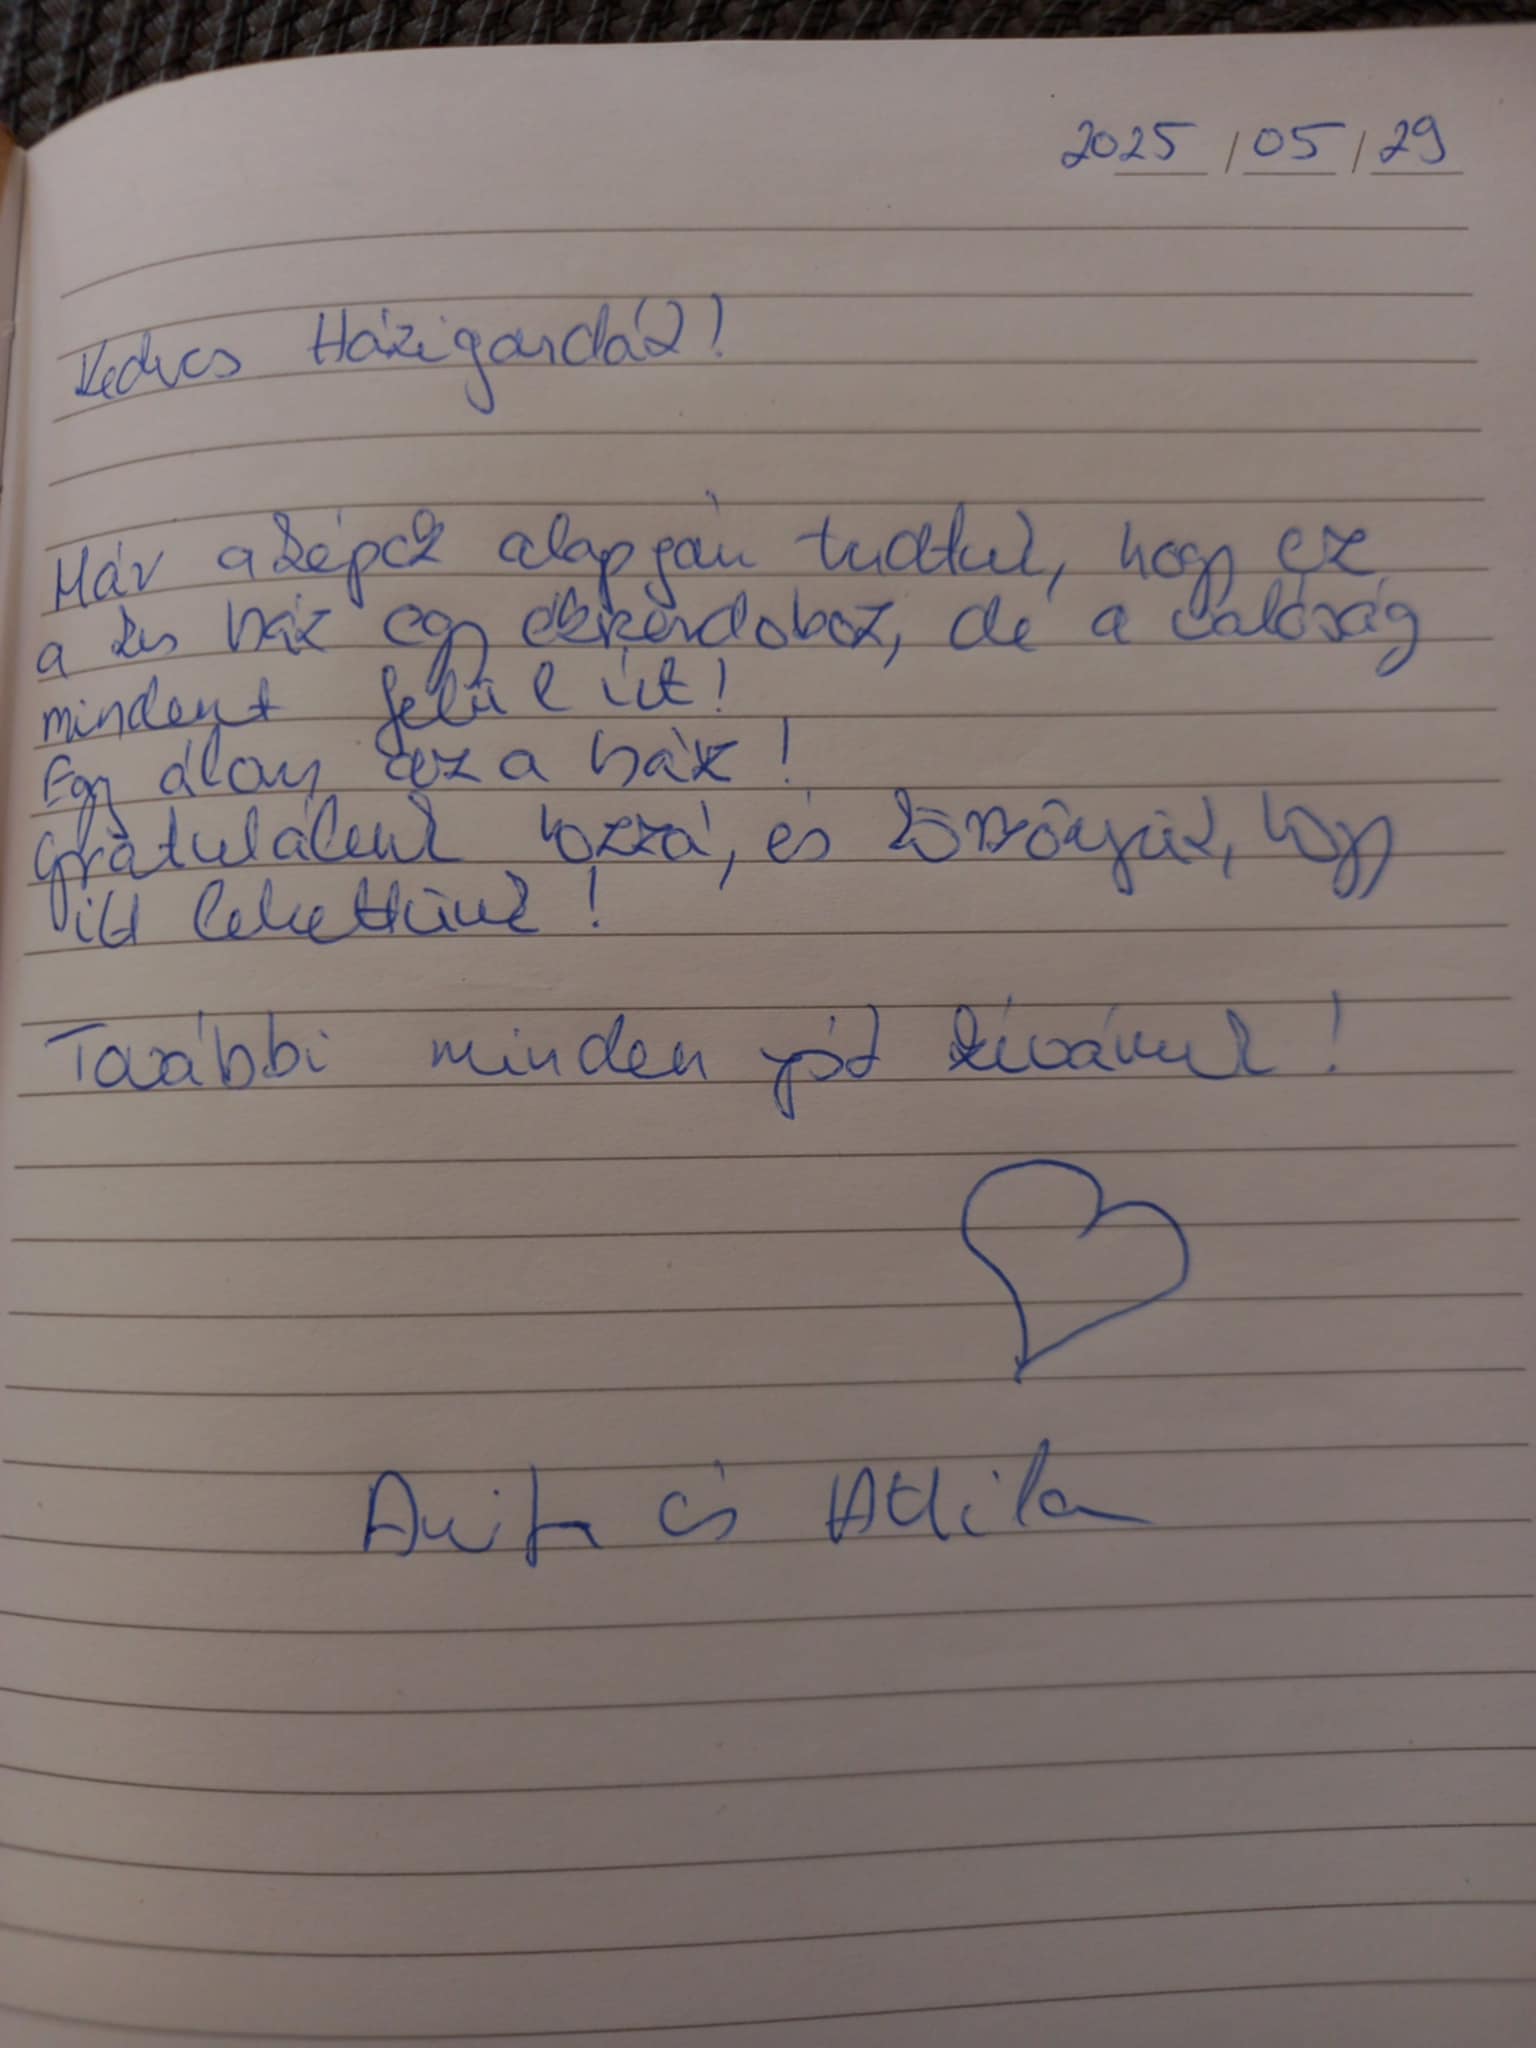 2025/05/29
Kedves Házigazdák!
Már a képek alapján tudtuk, hogy ez
a kis ház egy ékszerdoboz, de a valóság
mindent felül írt!
Egy álom ez a ház!
Gratulálunk hozzá, és köszönjük, hogy
itt lehettünk!
További minden jót kívánunk!
Anita és Attila